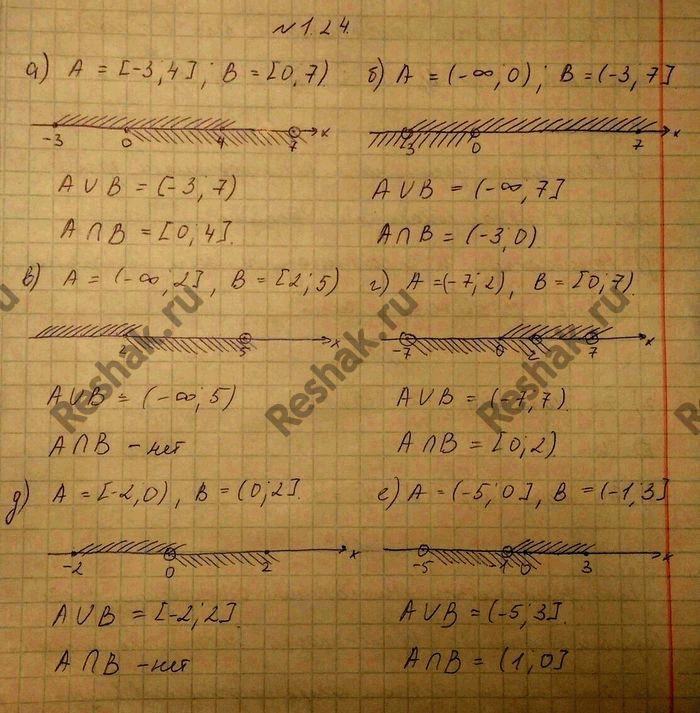 N 1.24.
а) A = [-3; 4]; B = [0; 7)
-3 0 4 7 x
A ∪ B = (-3; 7)
A ∩ B = [0; 4].
б) A = (-∞; 0); B = (-3; 7]
-3 0 7 x
A ∪ B = (-∞; 7]
A ∩ B = (-3; 0)
в) A = (-∞; 2], B = [2; 5)
2 5 x
A ∪ B = (-∞; 5)
A ∩ B - нет
г) A = (-7; 2), B = [0; 7).
-7 0 2 7 x
A ∪ B = (-7; 7).
A ∩ B = [0; 2)
д) A = [-2; 0), B = (0; 2].
-2 0 2 x
A ∪ B = [-2; 2].
A ∩ B - нет
е) A = (-5; 0], B = (-1; 3]
-5 -1 0 3 x
A ∪ B = (-5; 3].
A ∩ B = (1; 0]
Reshak.ru
Reshak.ru
Reshak.ru
Reshak.ru